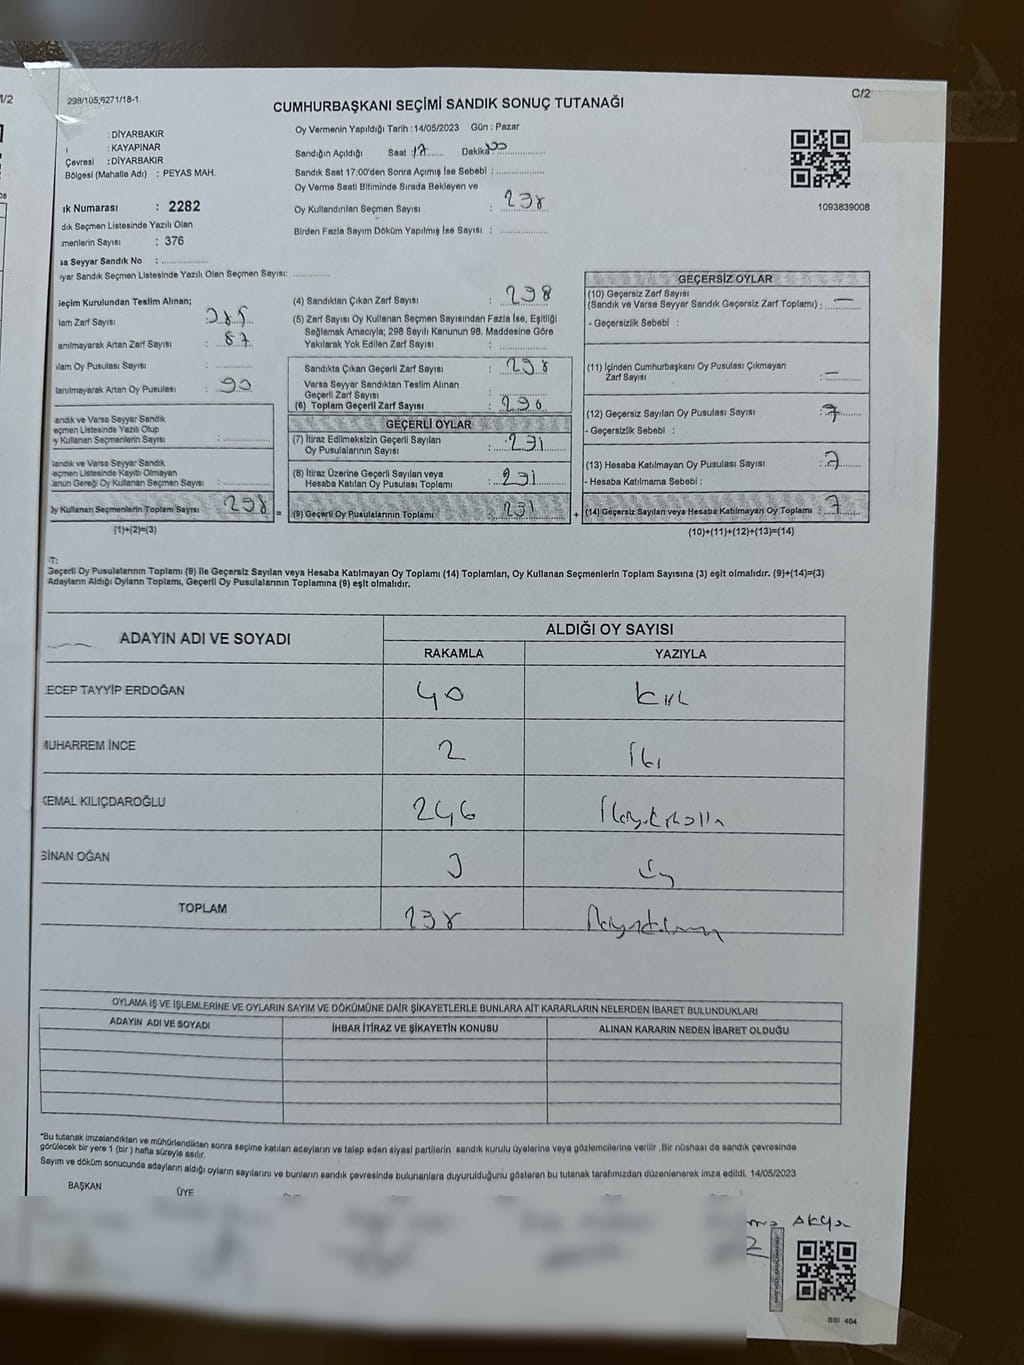 1/2
298/105,6271/18-1
C/2
CUMHURBAŞKANI SEÇİMİ SANDIK SONUÇ TUTANAĞI
: DİYARBAKIR
: KAYAPINAR
Çevresi : DİYARBAKIR
Bölgesi (Mahalle Adı) : PEYAS MAH.
ık Numarası : 2282
dık Seçmen Listesinde Yazılı Olan
menlerin Sayısı : 376
sa Seyyar Sandık No :
yar Sandık Seçmen Listesinde Yazılı Olan Seçmen Sayısı:
Oy Vermenin Yapıldığı Tarih :14/05/2023 Gün : Pazar
Sandığın Açıldığı Saat : 17 Dakika 00
Sandık Saat 17:00'den Sonra Açımış İse Sebebi :
Oy Verme Saati Bitiminde Sırada Bekleyen ve
Oy Kullandırılan Seçmen Sayısı : 238
Birden Fazla Sayım Döküm Yapılmış İse Sayısı :
1093839008
Seçim Kurulundan Teslim Alınan;
lam Zarf Sayısı : 385
anılmayarak Artan Zarf Sayısı : 87
lam Oy Pusulası Sayısı :
lanılmayarak Artan Oy Pusulası : 90
andık ve Varsa Seyyar Sandık
eçmen Listesinde Yazılı Olup
y Kullanan Seçmenlerin Sayısı :
andık ve Varsa Seyyar Sandık
eçmen Listesinde Kayıtlı Olmayan
anun Gereği Oy Kullanan Seçmen Sayısı :
Oy Kullanan Seçmenlerin Toplam Sayısı 298 =
(1)+(2)=(3)
(4) Sandıktan Çıkan Zarf Sayısı : 298
(5) Zarf Sayısı Oy Kullanan Seçmen Sayısından Fazla İse, Eşitliği
Sağlamak Amacıyla; 298 Sayılı Kanunun 98. Maddesine Göre
Yakılarak Yok Edilen Zarf Sayısı :
Sandıkta Çıkan Geçerli Zarf Sayısı : 298
Varsa Seyyar Sandıktan Teslim Alınan
Geçerli Zarf Sayısı :
(6) Toplam Geçerli Zarf Sayısı : 296
GEÇERLİ OYLAR
(7) İtiraz Edilmeksizin Geçerli Sayılan
Oy Pusulalarının Sayısı : 291
(8) İtiraz Üzerine Geçerli Sayılan veya
Hesaba Katılan Oy Pusulası Toplamı : 291
(9) Geçerli Oy Pusulalarının Toplamı 291 +
GEÇERSİZ OYLAR
(10) Geçersiz Zarf Sayısı
(Sandık ve Varsa Seyyar Sandık Geçersiz Zarf Toplamı) : —
- Geçersizlik Sebebi :
(11) İçinden Cumhurbaşkanı Oy Pusulası Çıkmayan
Zarf Sayısı : —
(12) Geçersiz Sayılan Oy Pusulası Sayısı : 7
- Geçersizlik Sebebi :
(13) Hesaba Katılmayan Oy Pusulası Sayısı : 7
- Hesaba Katılmama Sebebi :
(14) Geçersiz Sayılan veya Hesaba Katılmayan Oy Toplamı : 7
(10)+(11)+(12)+(13)=(14)
T:
Geçerli Oy Pusulalarının Toplamı (9) İle Geçersiz Sayılan veya Hesaba Katılmayan Oy Toplamı (14) Toplamları, Oy Kullanan Seçmenlerin Toplam Sayısına (3) eşit olmalıdır. (9)+(14)=(3)
Adayların Aldığı Oyların Toplamı, Geçerli Oy Pusulalarının Toplamına (9) eşit olmalıdır.
ADAYIN ADI VE SOYADI
ALDIĞI OY SAYISI
RAKAMLA YAZIYLA
ECEP TAYYİP ERDOĞAN 40 Kırk
MUHARREM İNCE 2 İki
KEMAL KILIÇDAROĞLU 246 İkiyüzkırkaltı
SİNAN OĞAN 3 Üç
TOPLAM 298
OYLAMA İŞ VE İŞLEMLERİNE VE OYLARIN SAYIM VE DÖKÜMÜNE DAİR ŞİKAYETLERLE BUNLARA AİT KARARLARIN NELERDEN İBARET BULUNDUKLARI
ADAYIN ADI VE SOYADI İHBAR İTİRAZ VE ŞİKAYETİN KONUSU ALINAN KARARIN NEDEN İBARET OLDUĞU
*Bu tutanak imzalandıktan ve mühürlendikten sonra seçime katılan adayların ve talep eden siyasi partilerin sandık kurulu üyelerine veya gözlemcilerine verilir .Bir nüshası da sandık çevresinde
görülecek bir yere 1 (bir ) hafta süreyle asılır.
Sayım ve döküm sonucunda adayların aldığı oyların sayılarını ve bunların sandık çevresinde bulunanlara duyurulduğunu gösteren bu tutanak tarafımızdan düzenlenerek imza edildi. 14/05/2023
BAŞKAN ÜYE
BSI 404